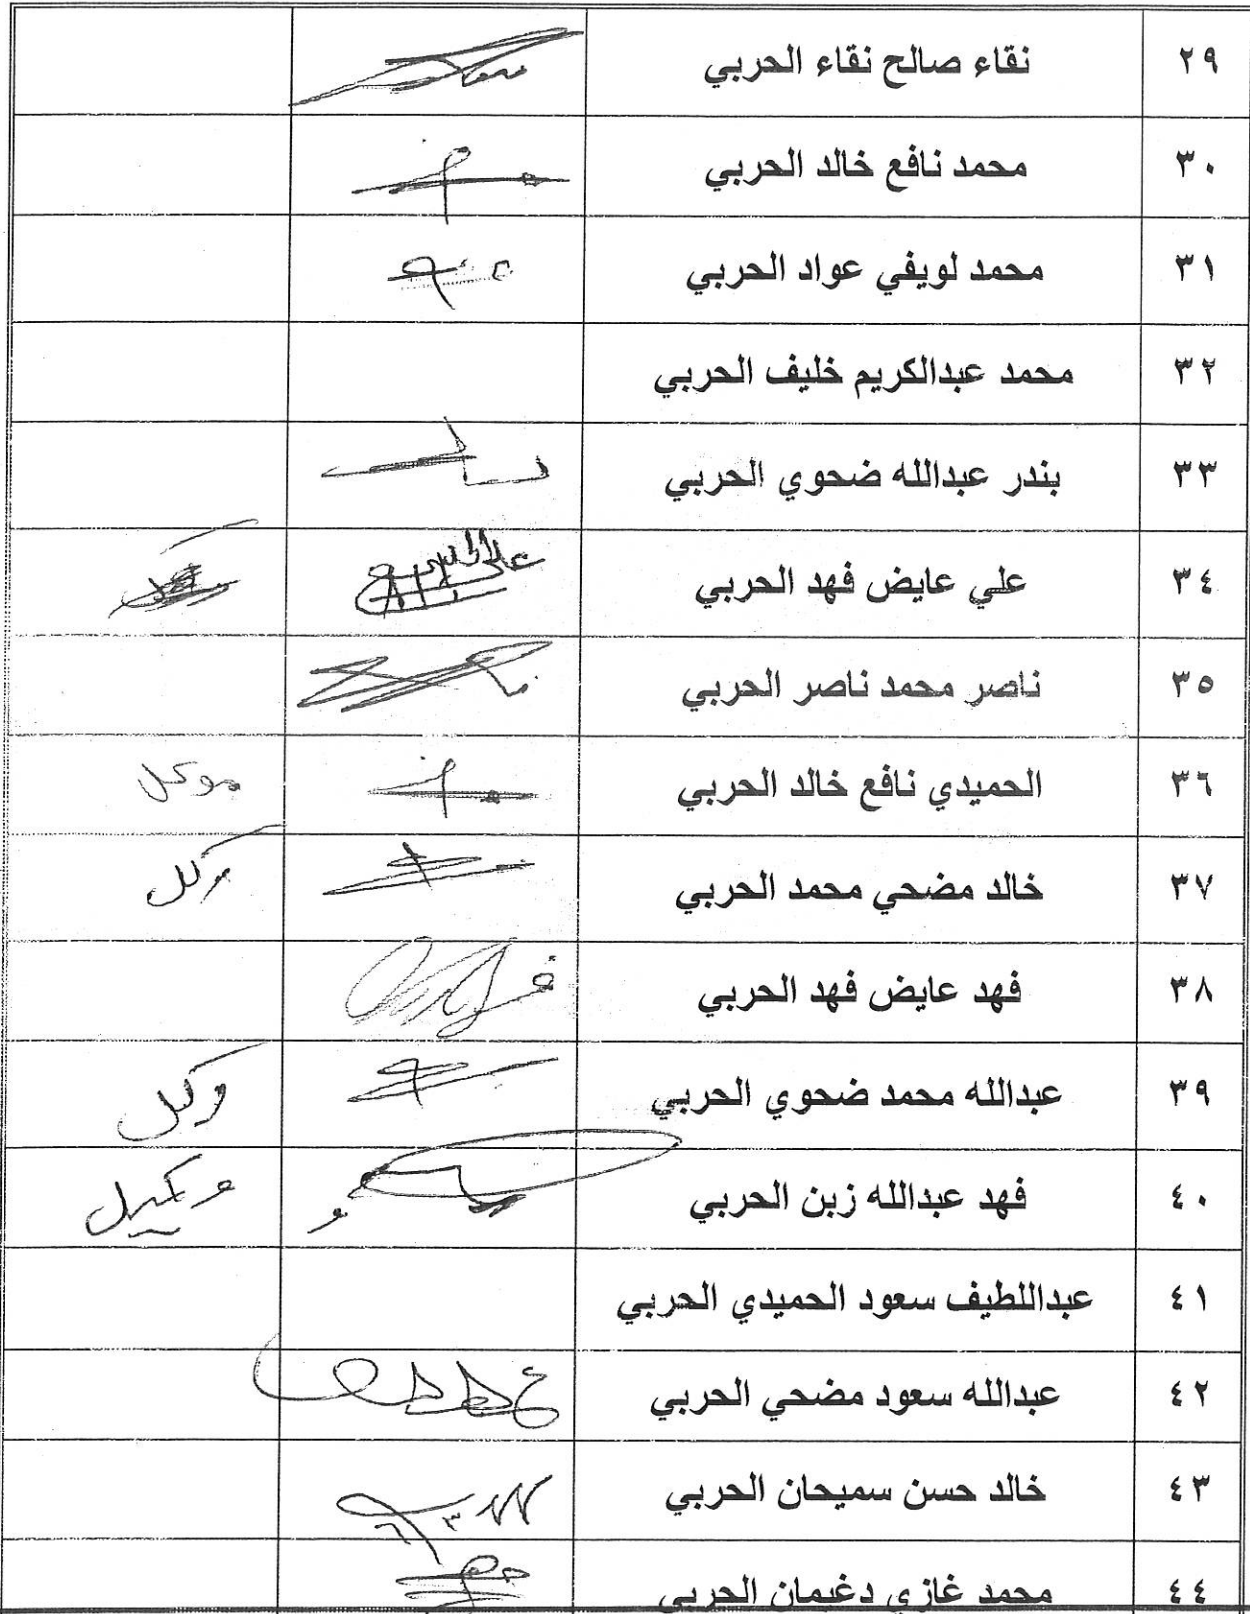 ٢٩ نقاء صالح نقاء الحربي
٣٠ محمد نافع خالد الحربي
٣١ محمد لويفي عواد الحربي
٣٢ محمد عبدالكريم خليف الحربي
٣٣ بندر عبدالله ضحوي الحربي
٣٤ علي عايض فهد الحربي
٣٥ ناصر محمد ناصر الحربي
٣٦ الحميدي نافع خالد الحربي موكل
٣٧ خالد مضحي محمد الحربي وكل
٣٨ فهد عايض فهد الحربي
٣٩ عبدالله محمد ضحوي الحربي وكل
٤٠ فهد عبدالله زبن الحربي وكيل
٤١ عبداللطيف سعود الحميدي الحربي
٤٢ عبدالله سعود مضحي الحربي
٤٣ خالد حسن سميحان الحربي
٤٤ محمد غازي دغيمان الحربي